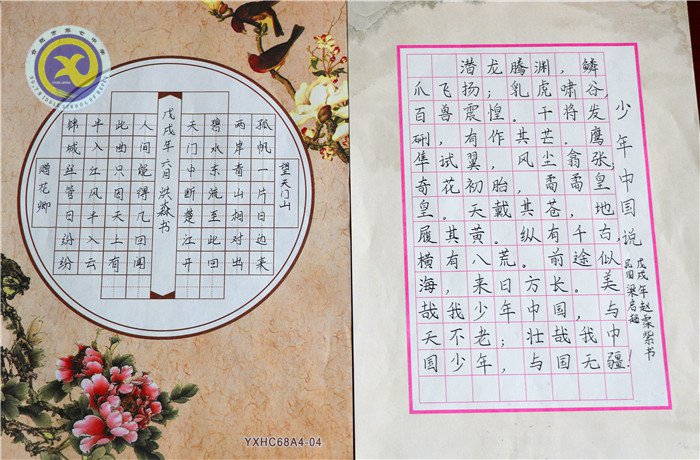 赠花卿
锦城丝管日纷纷
半入江风半入云
此曲只因天上有
人间能得几回闻
戊戌年六月洪森书
天门中断楚江开
碧水东流至此回
两岸青山相对出
孤帆一片日边来
望天门山
YXHC68A4-04
潜龙腾渊，鳞
爪飞扬；乳虎啸谷，
百兽震惶。干将发
硎，有作其芒。鹰
隼试翼，风尘翕张。
奇花初胎，矞矞皇
皇。天戴其苍，地
履其黄。纵有千古，
横有八荒。前途似
海，来日方长。美
哉我少年中国，与
天不老；壮哉我中
国少年，与国无疆！
少年中国说
民国梁启超
戊戌年赵霖紫书